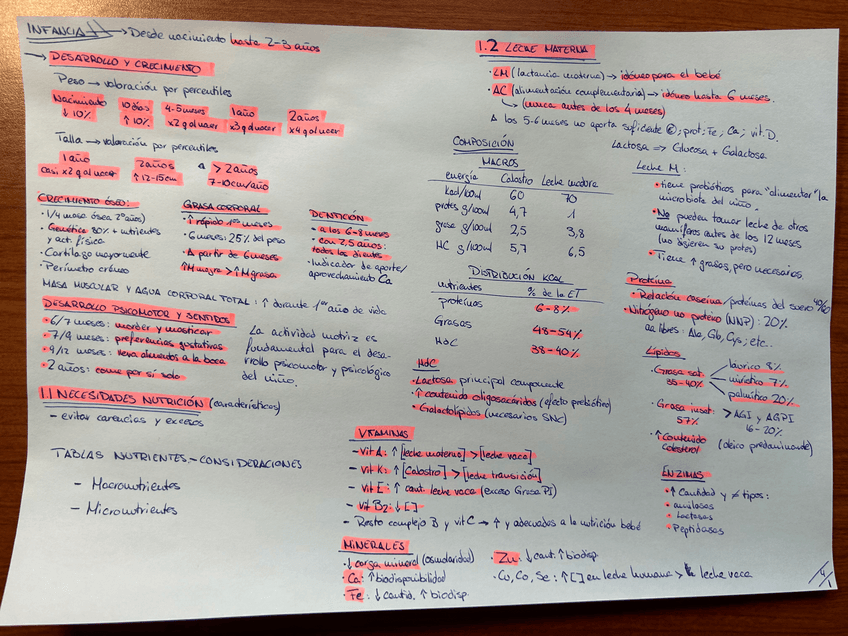 INFANCIA → Desde nacimiento hasta 2-3 años
→ DESARROLLO Y CRECIMIENTO
Peso → valoración por percentiles
Nacimiento 10 días 4-5 meses 1 año 2 años
↓ 10% ↑ 10% x2 q al nacer x3 q al nacer x4 q al nacer
Talla → valoración por percentiles
1 año 2 años Δ > 2 años
casi x2 q al nacer ↑ 12-15cm 7-10cm/año
CRECIMIENTO ÓSEO:
· 1/4 masa ósea 2º años)
· Genética 80% + nutrientes
y act. física
· Cartílago mayormente
· Perímetro cráneo
GRASA CORPORAL
· ↑ rápido 1ºs meses
· 6 meses: 25% del peso
· A partir de 6 meses
↑ M magra > ↑ M grasa
DENTICIÓN
- a los 6-8 meses
- con 2,5 años:
todos los dientes
- Indicador de aporte/
aprovechamiento Ca
MASA MUSCULAR Y AGUA CORPORAL TOTAL: ↑ durante 1er año de vida
DESARROLLO PSICOMOTOR Y SENTIDOS
· 6/7 meses: morder y masticar
· 7/9 meses: preferencias gustativas
· 9/12 meses: lleva alimentos a la boca
· 2 años: come por sí solo
La actividad motriz es
fundamental para el desa-
rrollo psicomotor y psicológico
del niño.
1.1 NECESIDADES NUTRICIÓN (características)
- evitar carencias y excesos
TABLAS NUTRIENTES - CONSIDERACIONES
- Macronutrientes
- Micronutrientes
1.2 LECHE MATERNA
· LM (lactancia materna) → idóneo para el bebé
· AC (alimentación complementaria) → idóneo hasta 6 meses.
↳ (nunca antes de los 4 meses)
Δ los 5-6 meses no aporta suficiente ; prot; Fe; Ca; vit. D.
Lactosa => Glucosa + Galactosa
COMPOSICIÓN
MACROS
energía Calostro Leche madura
kcal/100ml 60 70
protes g/100ml 4,7 1
grasa g/100ml 2,5 3,8
HC g/100ml 5,7 6,5
DISTRIBUCIÓN KCAL
nutrientes % de la ET
proteínas 6-8%
Grasas 48-54%
HdC 38-40%
HdC
· Lactosa principal componente
· ↑ contenido oligosacáridos (efecto prebiótico)
· Galactolípidos (necesarios SNC)
Leche M:
· tiene probióticos para "alimentar" la
microbiota del niño.
· No pueden tomar leche de otros
mamíferos antes de los 12 meses
(no digieren su protes)
· Tiene ↑ grasas, pero necesarios.
Proteína
· Relación caseína/proteínas del suero 40/60
· Nitrógeno no proteico (NNP): 20%
aa libres: Ala, Glu, Cys, etc..
Lípidos
· Grasa sat. laúrico 8%
35-40% mirístico 7%
palmítico 20%
· Grasa insat: > AGI y AGPI
57% 16-20%
· ↑ Contenido (oleico predominante)
Colesterol
ENZIMAS
· ↑ Cantidad y ≠ tipos:
· amilasas
· Lactasas
· Peptidasas
VITAMINAS
- Vit A: ↑ [leche materna] > [leche vaca]
- Vit K: ↑ [Calostro] > [leche transición]
- Vit E: ↑ cant. leche vaca (exceso Grasa PI)
- vit B2: ↓ [ ]
- Resto complejo B y vit C → ↑ y adecuados a la nutrición bebé
MINERALES
· ↓ carga mineral (osmolaridad)
· Ca: ↑ biodisponibilidad
· Fe: ↓ cantid. ↑ biodisp.
· Zn: ↓ cant. ↑ biodisp.
· Cu, Co, Se: ↑ [ ] en leche humana > leche vaca
4/1